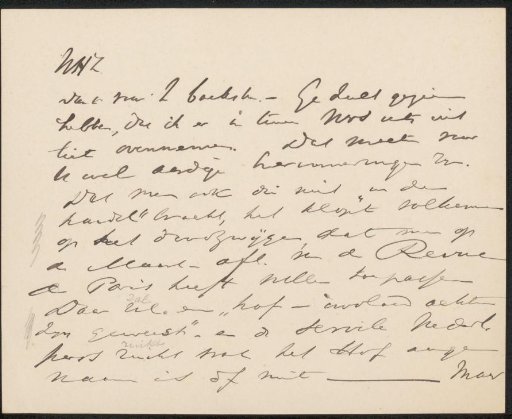 WHZ
Dank voor 2 boeken. — Ge zult gezien
hebben, dat ik er in twee Nos iets uit
liet overnemen. Dat moet voor
U wel aardige herinneringen zijn.
Dat men ook die niet "in den
handel" bracht, het klopt volkomen
op het doodzwijgen, dat men op
de Maart-afl. van de Revue
de Paris heeft willen toepassen
Daar zal een "hof-invloed achter
zijn geweest". en de servile Nederl.
pers zwicht wat het Hof aange
naam is of niet — Maar